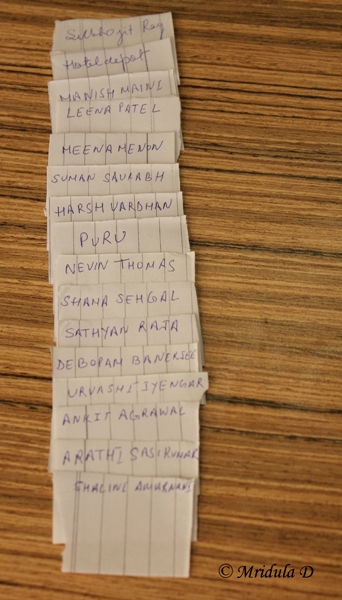 Subhojit Roy
Hoteldepot
MANISH MAINI
LEENA PATEL
MEENA MENON
SUMAN SAURABH
HARSH VARDHAN
PURU
NEVIN THOMAS
SHANA SEHGAL
SATHYAN RAJA
DEBOPAM BANERJEE
URVASHI IYENGAR
ANKIT AGRAWAL
ARATHI SASIKUMAR
SHALINI
© Mridula D